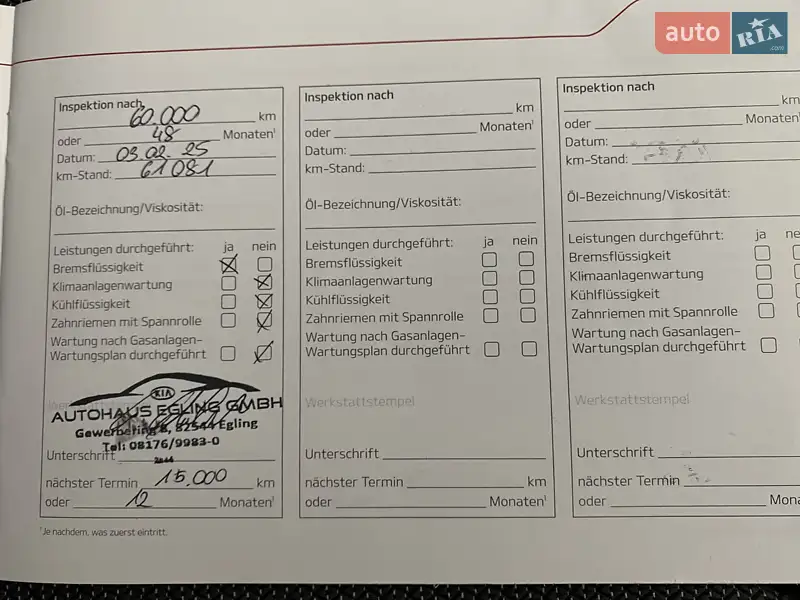 auto RIA .com
Inspektion nach 60.000 km
oder 48 Monaten¹
Datum: 03.02.25
km-Stand: 61081
Öl-Bezeichnung/Viskosität:
Leistungen durchgeführt: ja nein
Bremsflüssigkeit
Klimaanlagenwartung
Kühlflüssigkeit
Zahnriemen mit Spannrolle
Wartung nach Gasanlagen-
Wartungsplan durchgeführt
KIA
AUTOHAUS EGLING GMBH
Gewerbering 8, 82544 Egling
Tel: 08176/9983-0
Unterschrift
nächster Termin 15.000 km
oder 12 Monaten¹
¹Je nachdem, was zuerst eintritt.
Inspektion nach
km
oder Monaten¹
Datum:
km-Stand:
Öl-Bezeichnung/Viskosität:
Leistungen durchgeführt: ja nein
Bremsflüssigkeit
Klimaanlagenwartung
Kühlflüssigkeit
Zahnriemen mit Spannrolle
Wartung nach Gasanlagen-
Wartungsplan durchgeführt
Werkstattstempel
Unterschrift
nächster Termin km
oder Monaten¹
Inspektion nach
km
oder Monaten
Datum:
km-Stand:
Öl-Bezeichnung/Viskosität:
Leistungen durchgeführt: ja ne
Bremsflüssigkeit
Klimaanlagenwartung
Kühlflüssigkeit
Zahnriemen mit Spannrolle
Wartung nach Gasanlagen-
Wartungsplan durchgeführt
Werkstattstempel
Unterschrift
nächster Termin
oder Mona